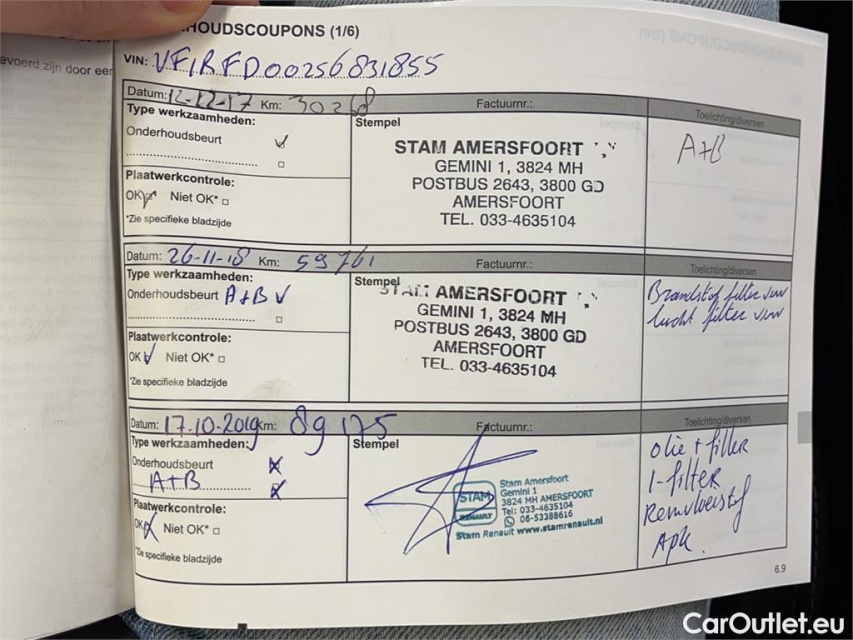 evoerd zijn door een
HOUDSCOUPONS (1/6)
VIN: VF1RFD00256831855
Datum: 12-12-17 Km: 30268 Factuurnr.: Toelichting/diversen
Type werkzaamheden:
Onderhoudsbeurt
Plaatwerkcontrole:
OK Niet OK*
*Zie specifieke bladzijde
Stempel
STAM AMERSFOORT
GEMINI 1, 3824 MH
POSTBUS 2643, 3800 GD
AMERSFOORT
TEL. 033-4635104
A+B
Datum: 26-11-18 Km: 59761 Factuurnr.: Toelichting/diversen
Type werkzaamheden:
Onderhoudsbeurt A+B
Plaatwerkcontrole:
OK Niet OK*
*Zie specifieke bladzijde
Stempel
STAM AMERSFOORT
GEMINI 1, 3824 MH
POSTBUS 2643, 3800 GD
AMERSFOORT
TEL. 033-4635104
Brandstof filter
lucht filter
Datum: 17-10-2019 Km: 89175 Factuurnr.: Toelichting/diversen
Type werkzaamheden:
Onderhoudsbeurt
A+B
Plaatwerkcontrole:
OK Niet OK*
*Zie specifieke bladzijde
Stempel
STAM
RENAULT
Stam Amersfoort
Gemini 1
3824 MH AMERSFOORT
Tel: 033-4635104
06-53388616
Stam Renault www.stamrenault.nl
Olie + filter
I-filter
Remvloeistof
Apk.
6.9
CarOutlet.eu